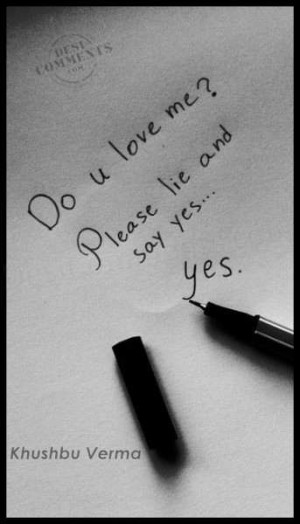 DESI
COMMENTS
.com
Do u love me?
Please lie and
say yes...
yes.
Khushbu Verma